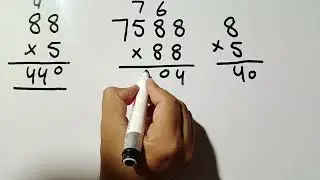 88
×5
440
7 6
7588
×88
04
8
×5
40